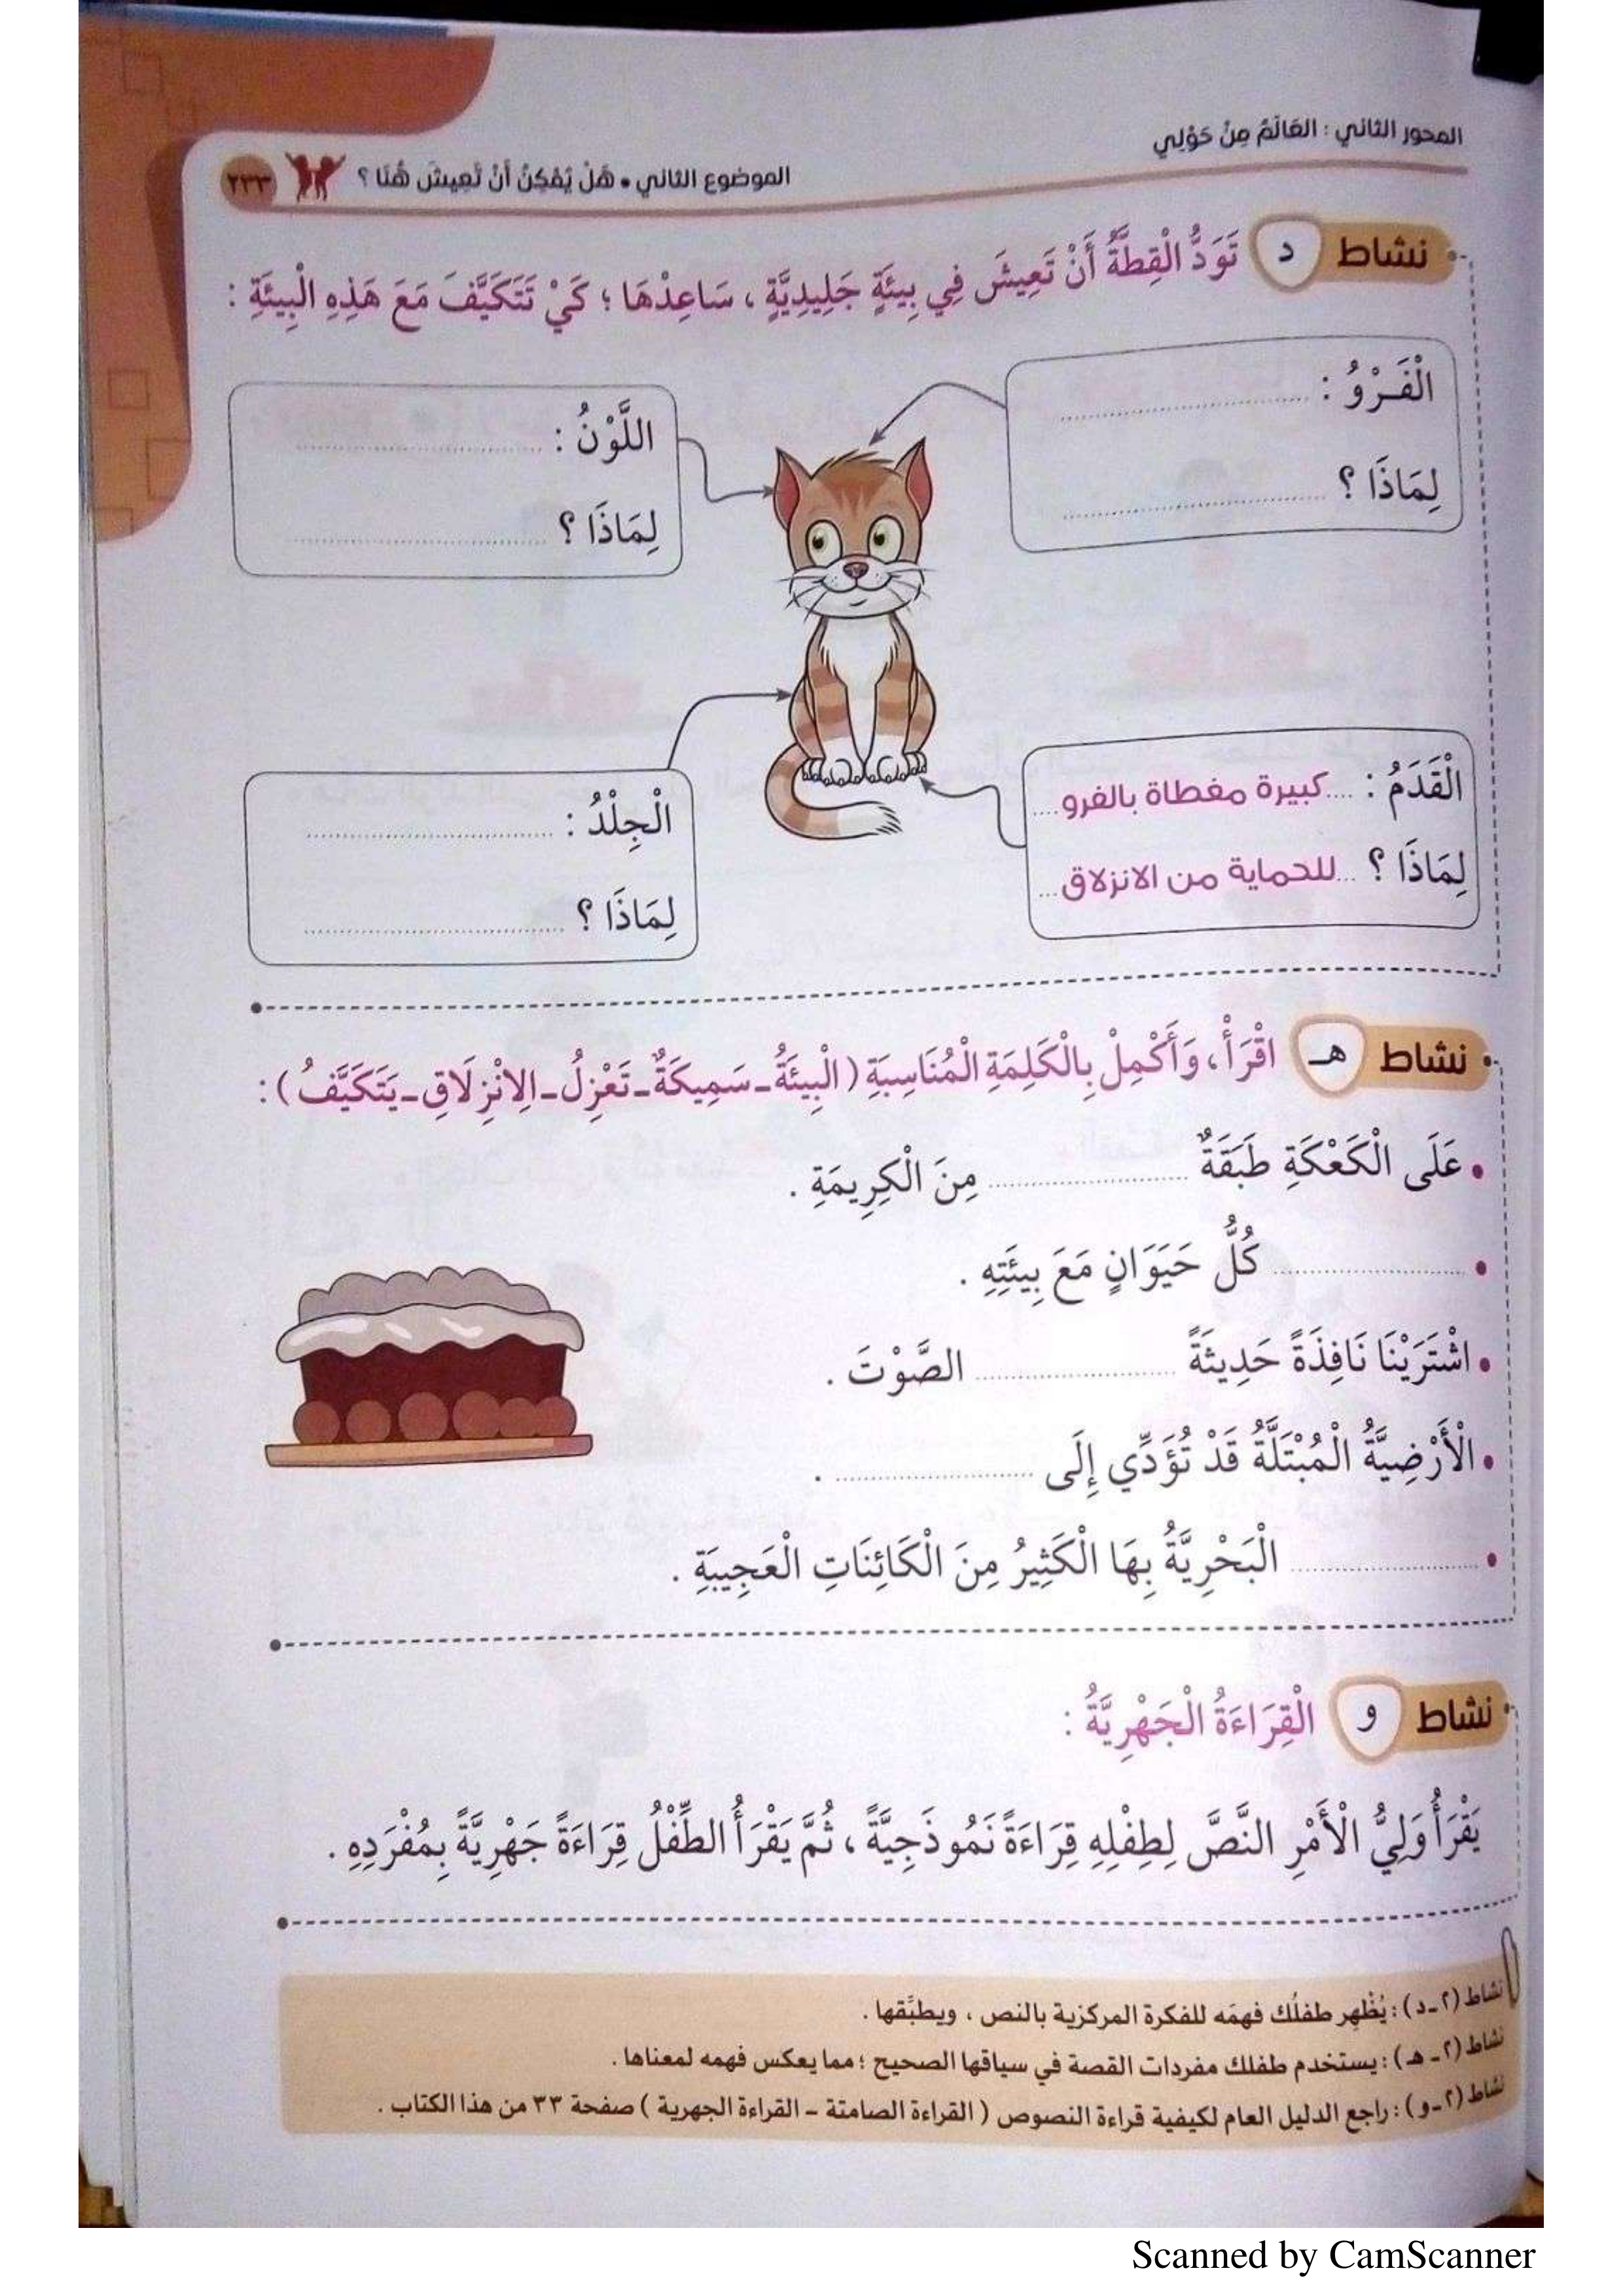 المحور الثاني : العَالَمُ مِنْ حَوْلِي
الموضوع الثاني • هَلْ يُمْكِنُ أَنْ تَعِيشَ هُنَا ؟ ٢٣٣
نشاط د تَوَدُّ الْقِطَّةُ أَنْ تَعِيشَ فِي بِيئَةٍ جَلِيدِيَّةٍ ، سَاعِدْهَا ؛ كَيْ تَتَكَيَّفَ مَعَ هَذِهِ الْبِيئَةِ :
الْفَرْوُ : ....................
لِمَاذَا ؟ ....................
اللَّوْنُ : ....................
لِمَاذَا ؟ ....................
الْقَدَمُ : ....كبيرة مغطاة بالفرو....
لِمَاذَا ؟ ...للحماية من الانزلاق...
الْجِلْدُ : ....................
لِمَاذَا ؟ ....................
نشاط هـ اقْرَأْ ، وَأَكْمِلْ بِالْكَلِمَةِ الْمُنَاسِبَةِ ( الْبِيئَةُ - سَمِيكَةٌ - تَعْزِلُ - الِانْزِلَاقِ - يَتَكَيَّفُ ) :
• عَلَى الْكَعْكَةِ طَبَقَةٌ .................... مِنَ الْكِرِيمَةِ .
• .................... كُلُّ حَيَوَانٍ مَعَ بِيئَتِهِ .
• اشْتَرَيْنَا نَافِذَةً حَدِيثَةً .................... الصَّوْتَ .
• الْأَرْضِيَّةُ الْمُبْتَلَّةُ قَدْ تُؤَدِّي إِلَى .................... .
• .................... الْبَحْرِيَّةُ بِهَا الْكَثِيرُ مِنَ الْكَائِنَاتِ الْعَجِيبَةِ .
نشاط و الْقِرَاءَةُ الْجَهْرِيَّةُ :
يَقْرَأُ وَلِيُّ الْأَمْرِ النَّصَّ لِطِفْلِهِ قِرَاءَةً نَمُوذَجِيَّةً ، ثُمَّ يَقْرَأُ الطِّفْلُ قِرَاءَةً جَهْرِيَّةً بِمُفْرَدِهِ .
نشاط (٢-د) : يُظْهِر طفلُك فهمَه للفكرة المركزية بالنص ، ويطبِّقها .
نشاط (٢-هـ) : يستخدم طفلك مفردات القصة في سياقها الصحيح ؛ مما يعكس فهمه لمعناها .
نشاط (٢-و) : راجع الدليل العام لكيفية قراءة النصوص ( القراءة الصامتة - القراءة الجهرية ) صفحة ٣٣ من هذا الكتاب .
Scanned by CamScanner